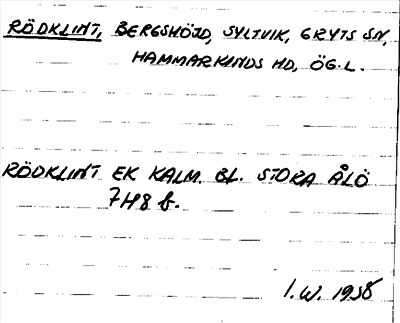 RÖDKLINT, BERGSHÖJD, SYLTVIK, GRYTS SN,
HAMMARKINDS HD, ÖG.L.
RÖDKLINT EK KALM. BL. STORA ÅLÖ
7H8 b.
I.W. 1958